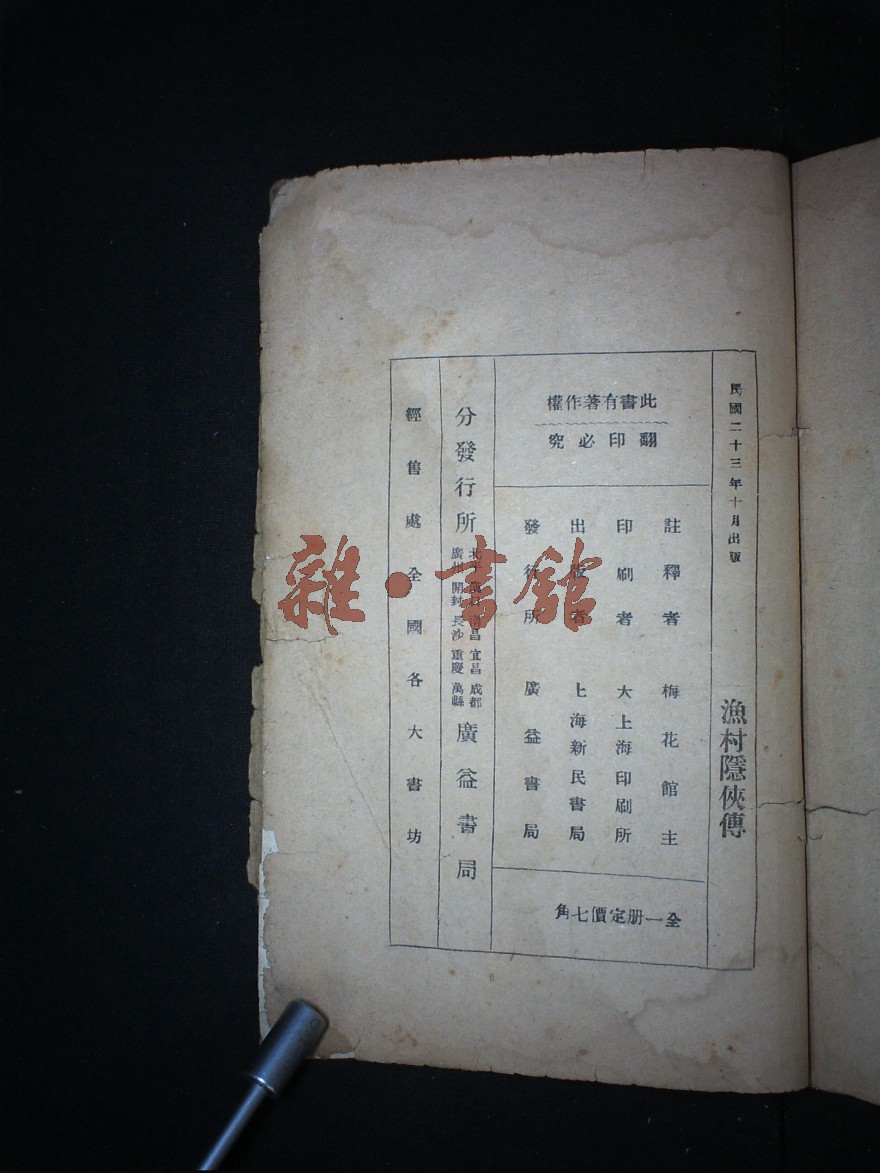 民國二十三年十月出版
漁村隱俠傳
此書有著作權
翻印必究
註釋者 梅花館主
印刷者 大上海印刷所
出版者 上海新民書局
發行所 廣益書局
全一册定價七角
分發行所
北平 宜昌 成都
廣州 開封 長沙 重慶 萬縣
廣益書局
經售處全國各大書坊
雜·書館